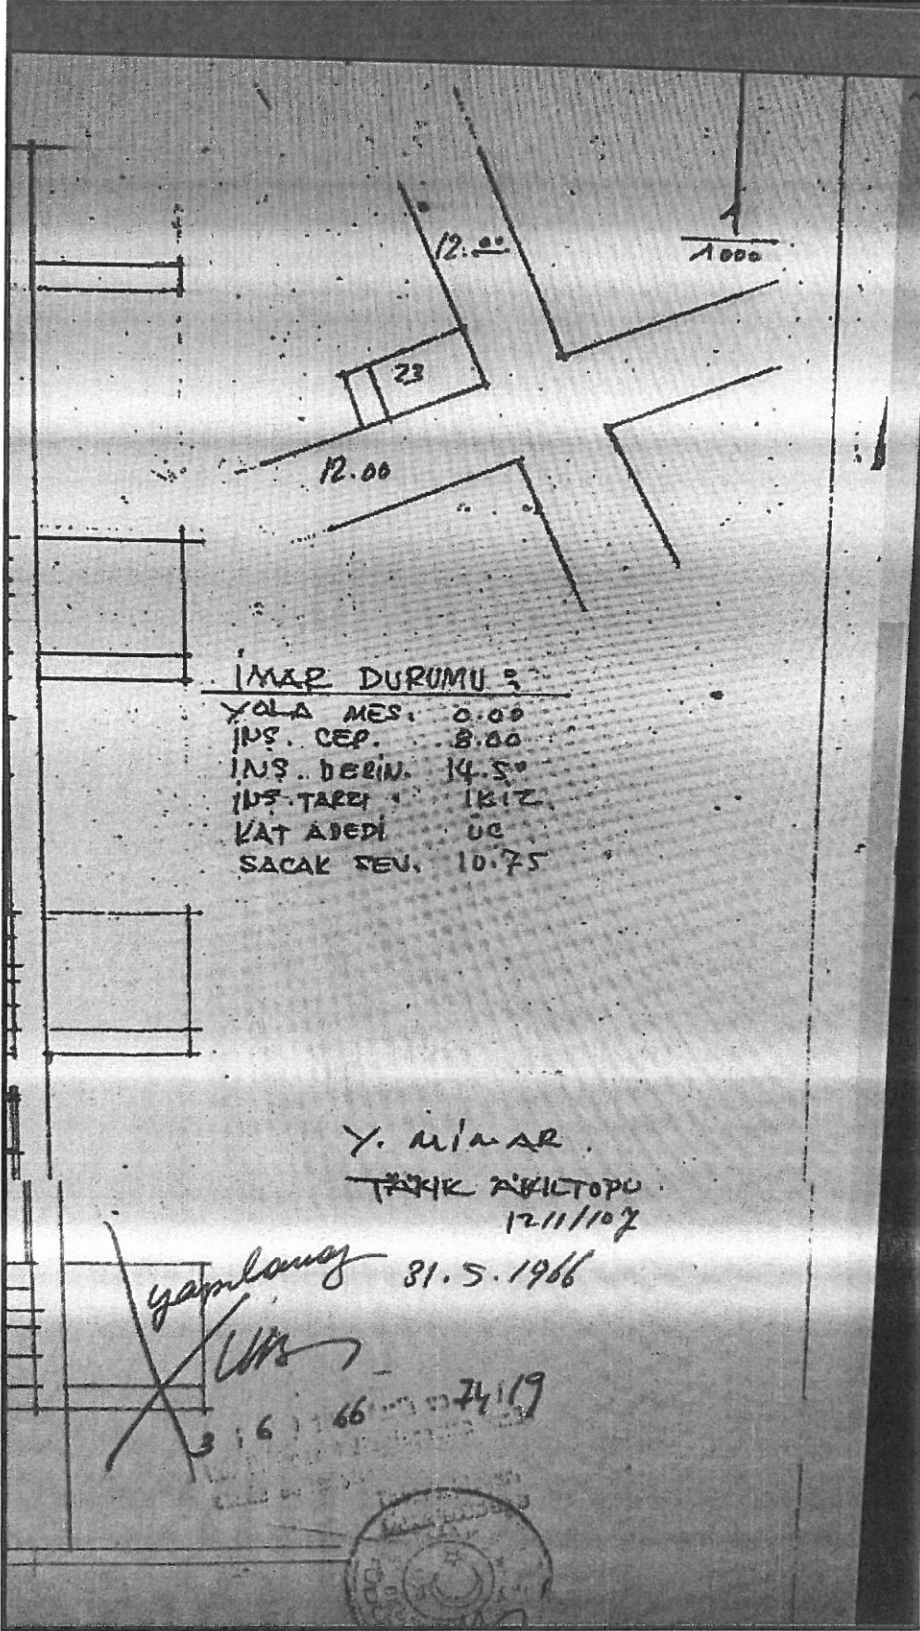 12.00
1
1000
23
12.00
İMAR DURUMU :
YOLA MES. 0.00
İNŞ. CEP. 8.00
İNŞ. DERİN. 14.50
İNŞ. TARZI İKİZ
KAT ADEDİ ÜC
SACAK SEV. 10.75
Y. MİMAR
1211/107
31.5.1966
3 6 66 74/19